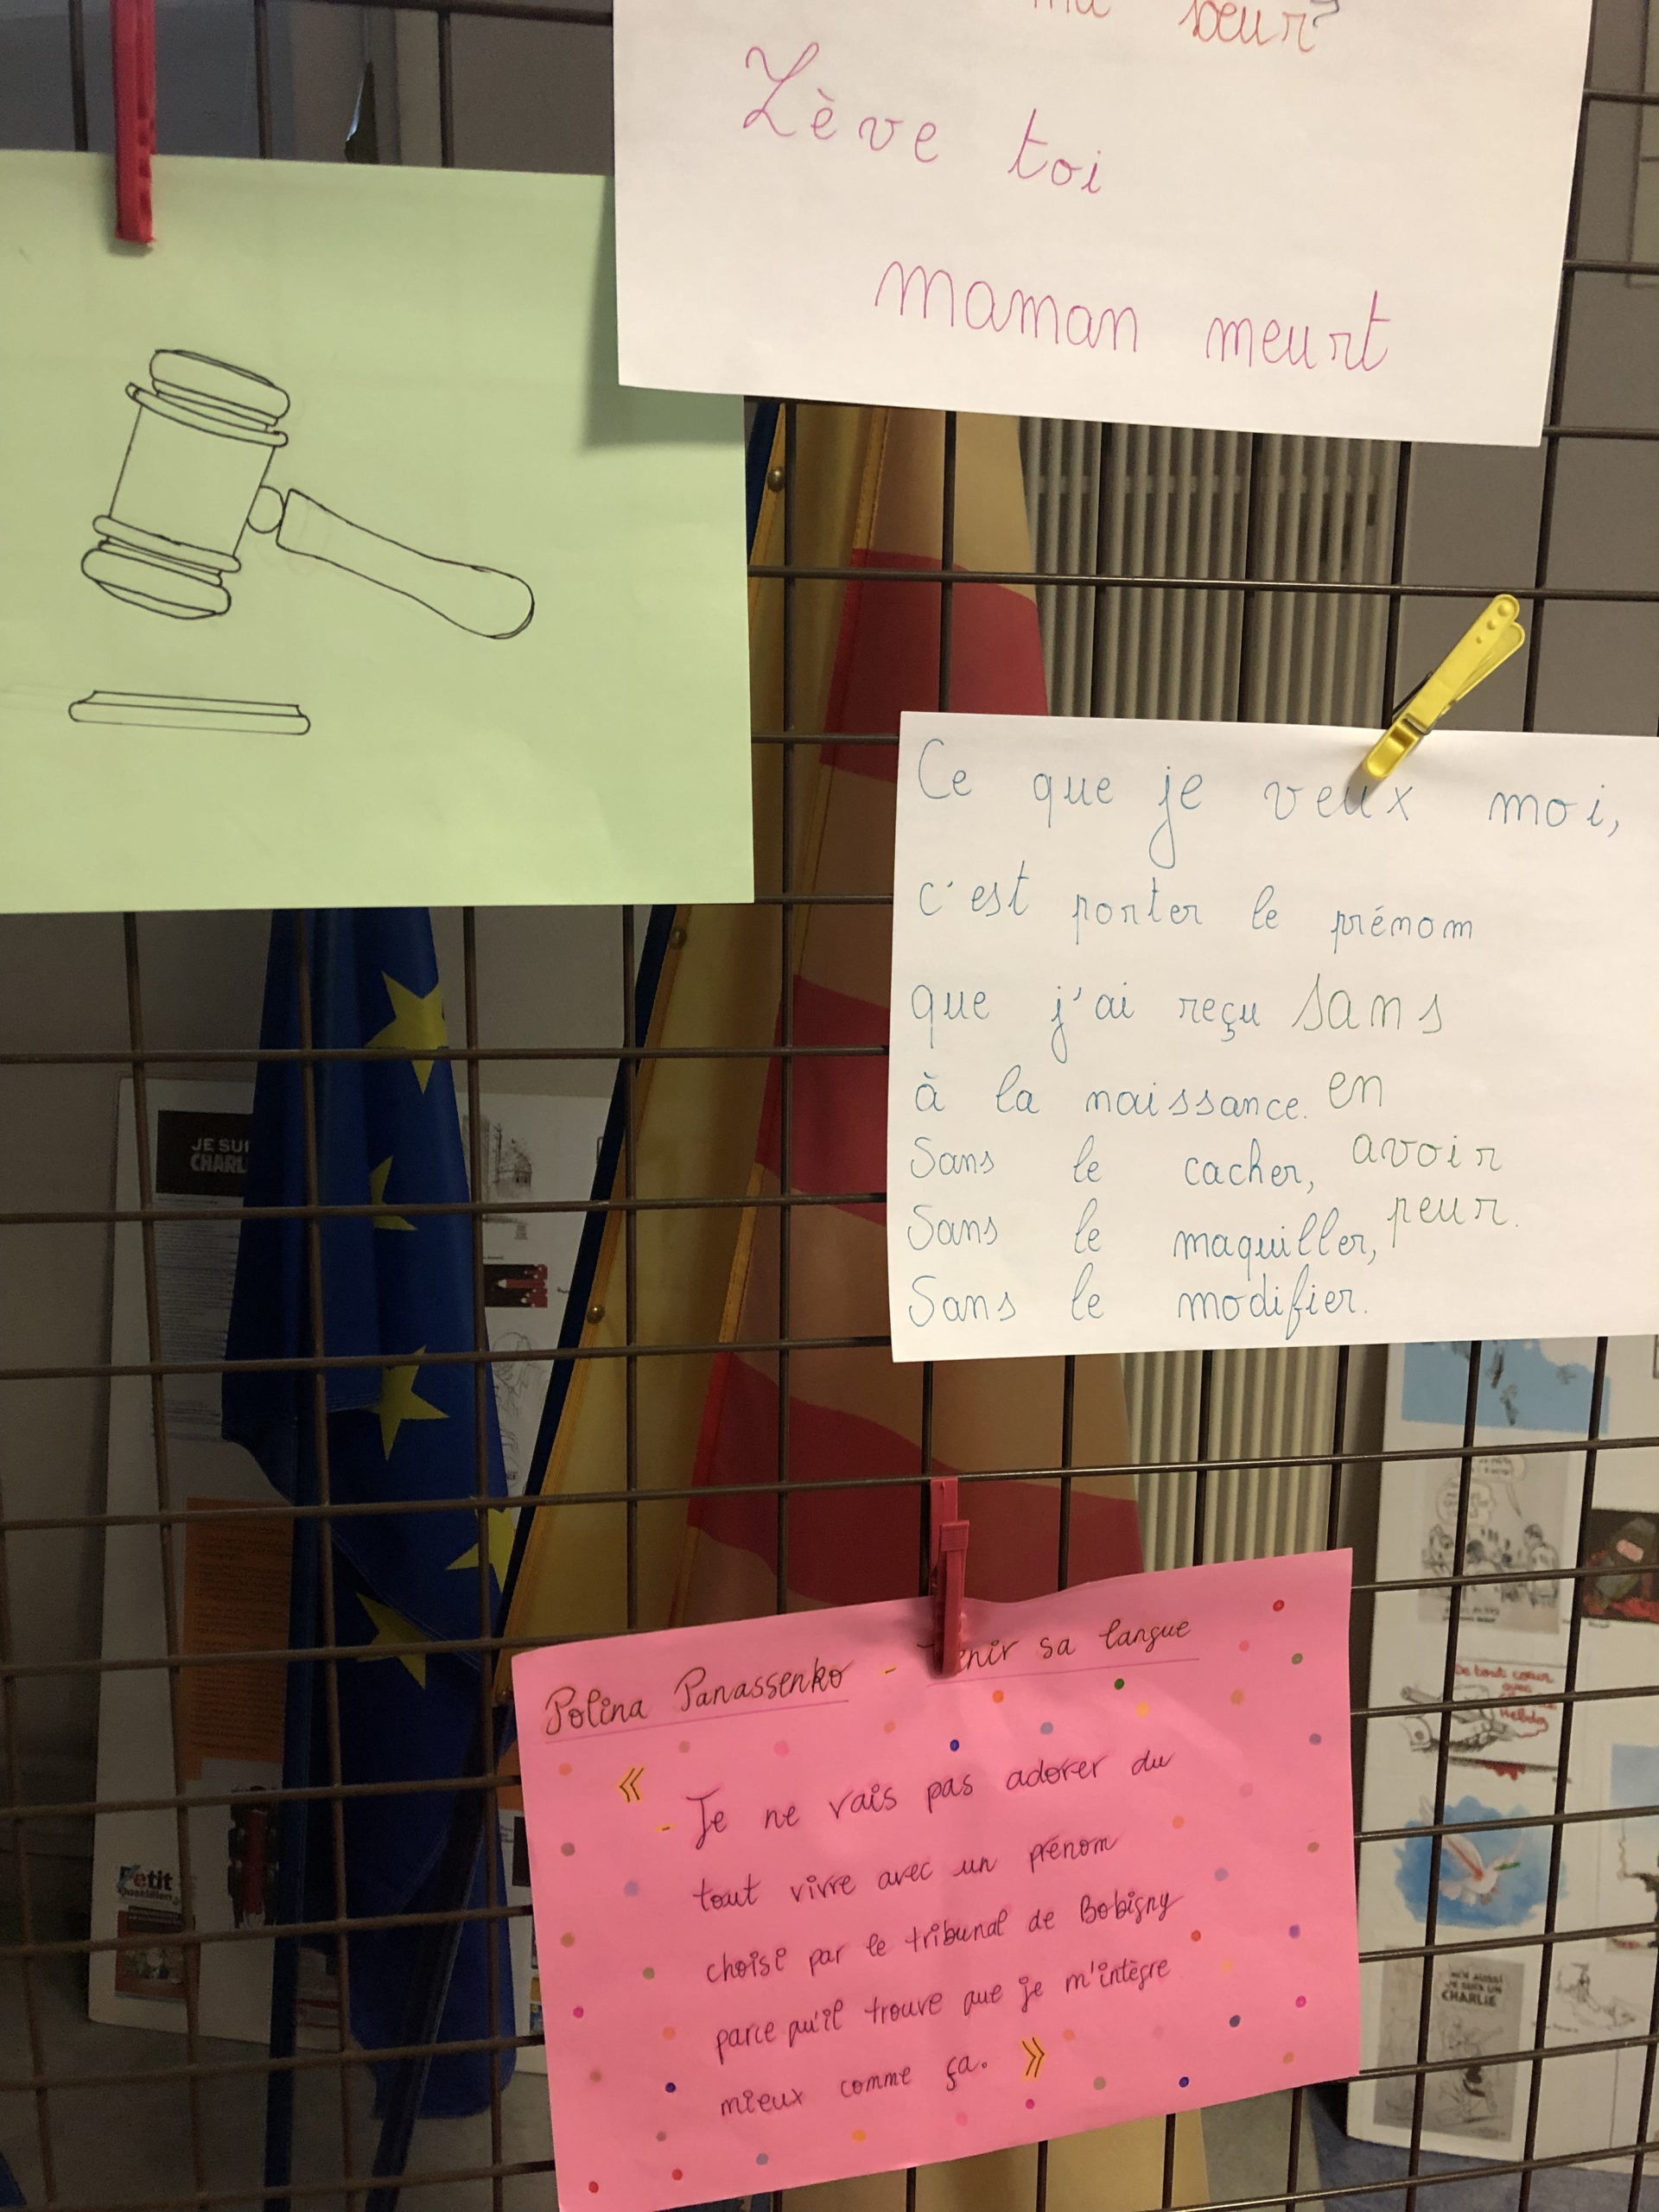 sœur?
Lève toi
maman meurt
Ce que je veux moi,
c'est porter le prénom
que j'ai reçu sans
à la naissance. en
Sans le cacher, avoir
Sans le maquiller, peur.
Sans le modifier.
Polina Panassenko - Tenir sa langue
«
- Je ne vais pas adorer du
tout vivre avec un prénom
choisi par le tribunal de Bobigny
parce qu'il trouve que je m'intègre
mieux comme ça. »
JE SUI
CHARL
Petit
Quotidien
De tout cœur
avec
Hebdo
MOI AUSSI
JE SUIS UN
CHARLIE